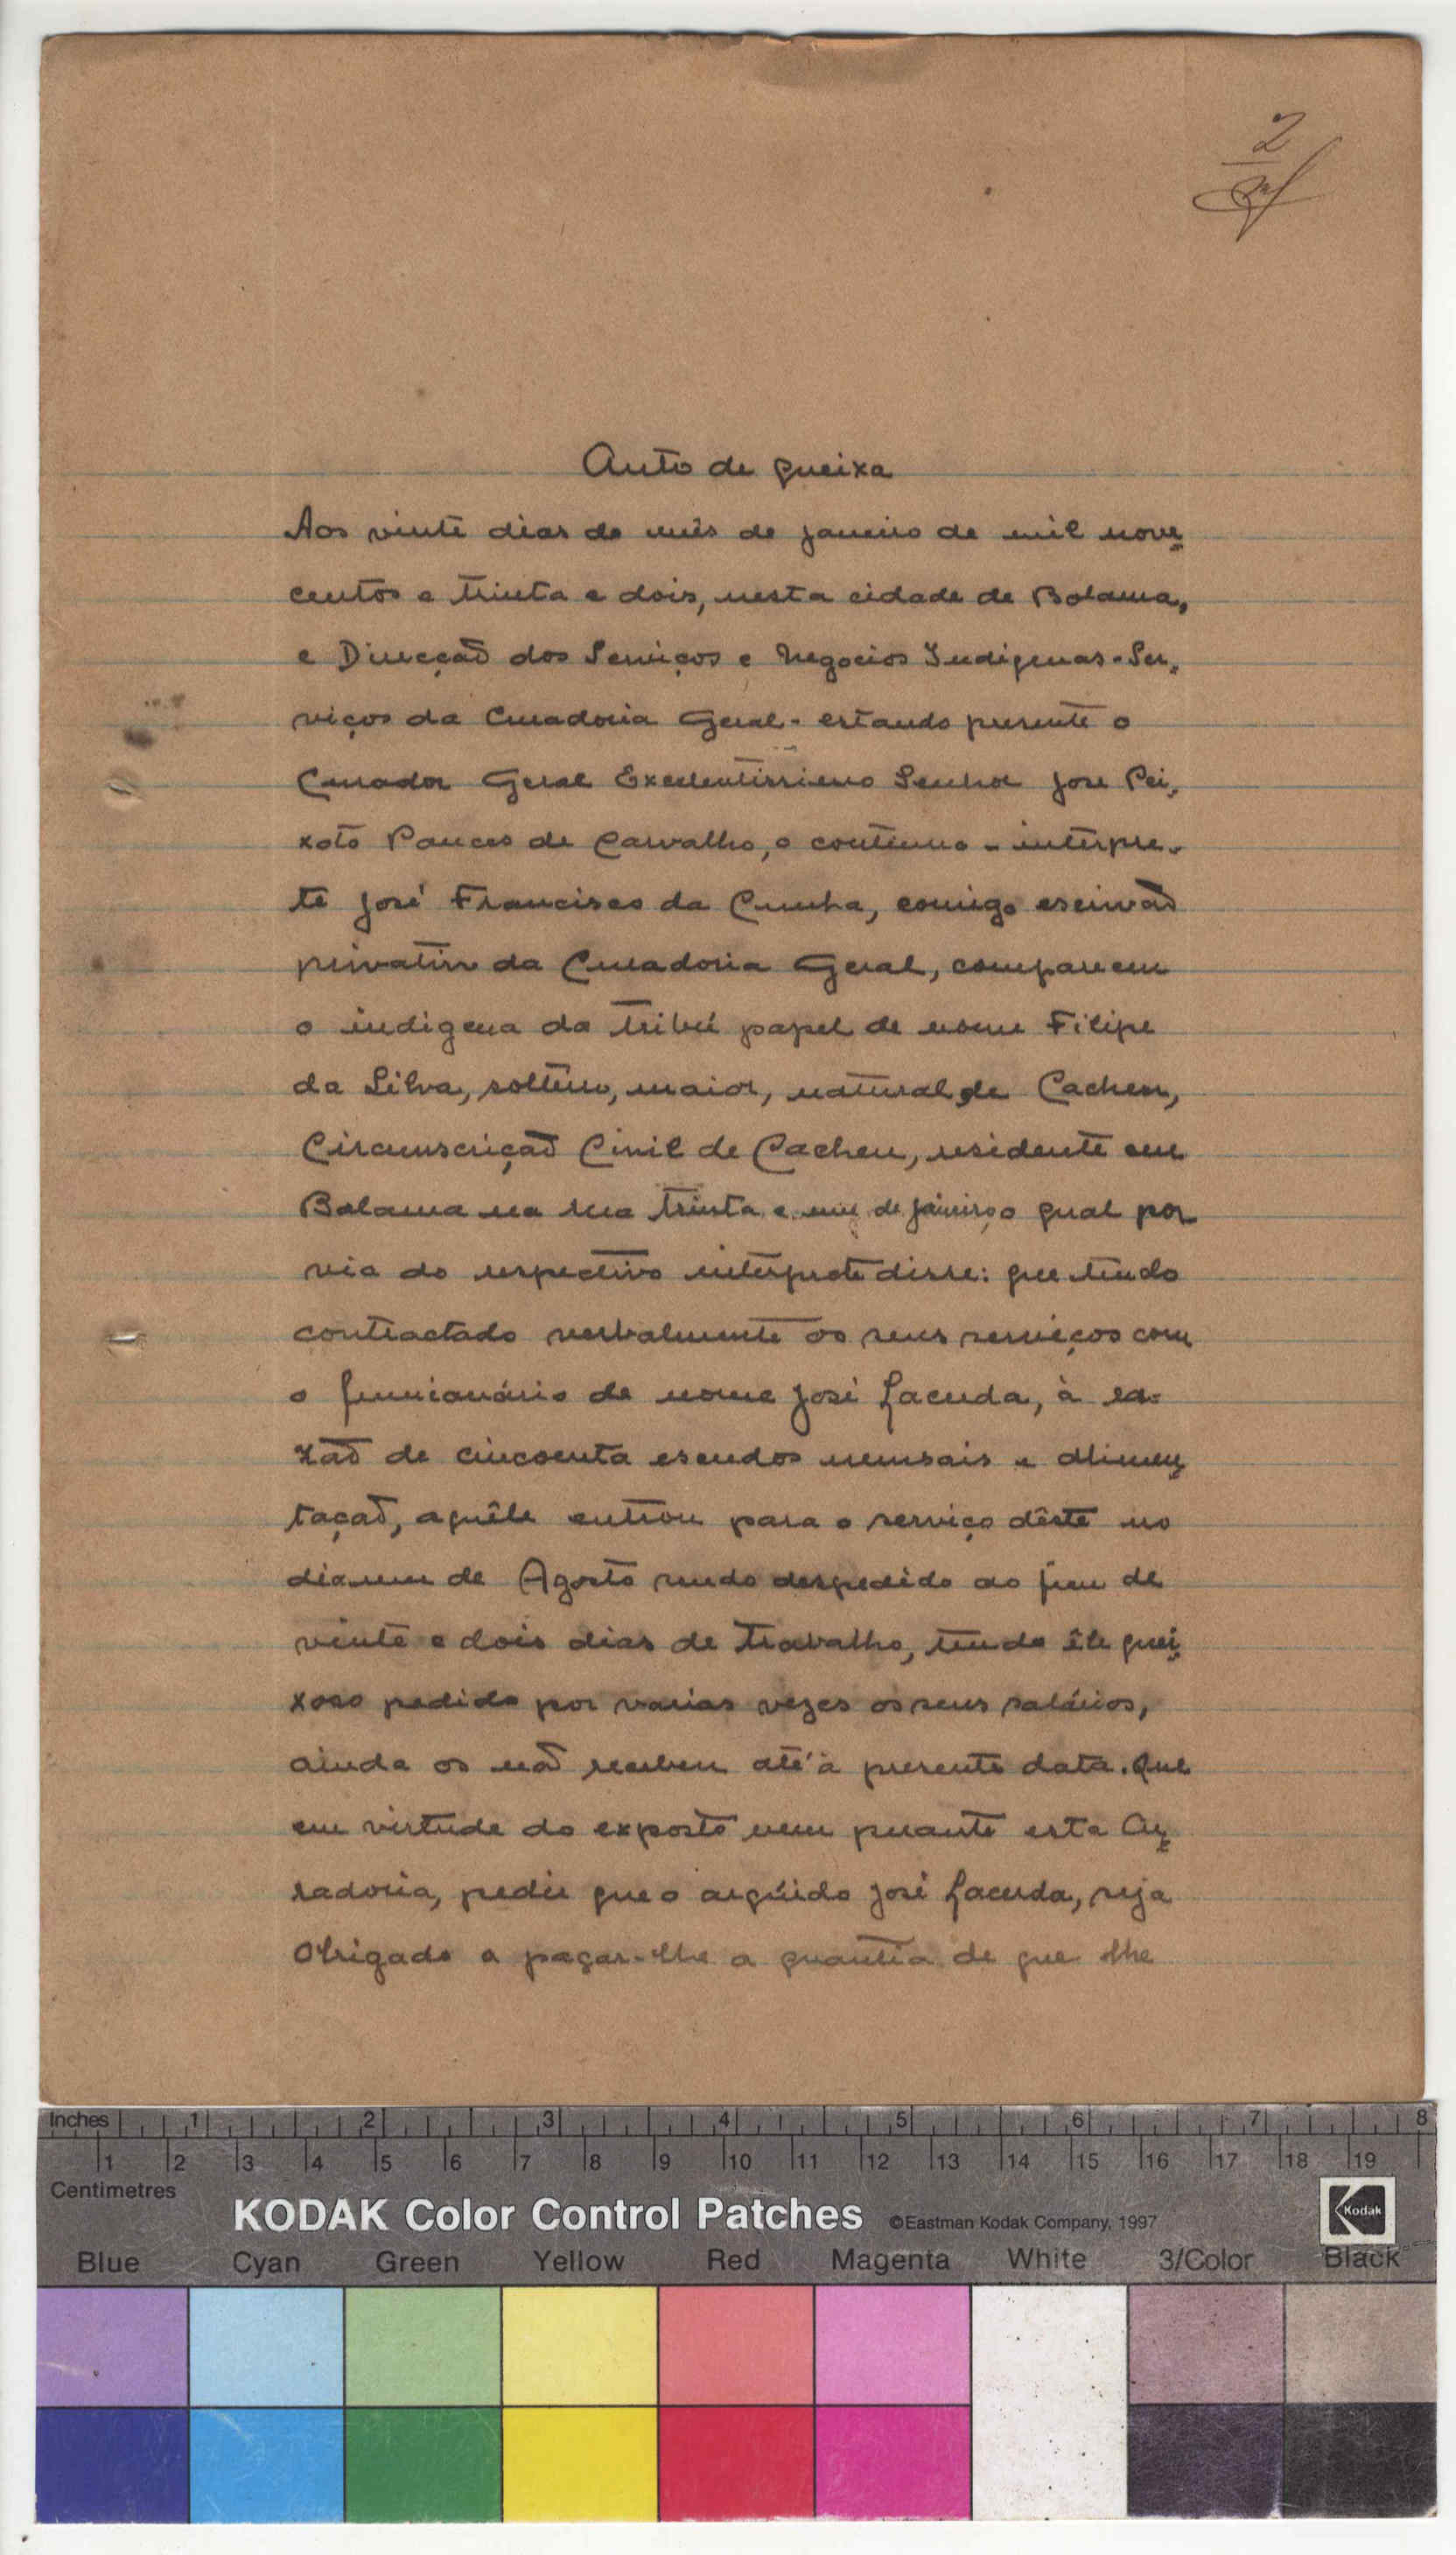 2
Auto de queixa
Aos vinte dias do mês de janeiro de mil nove
centos e trinta e dois, nesta cidade de Bolama,
e Direcção dos Serviços e Negocios Indigenas - Ser-
viços da Curadoria Geral - estando presente o
Curador Geral Excelentissimo Senhor José Pei-
xoto Ponces de Carvalho, o continuo - interpre-
te José Francisco da Cunha, comigo escrivão
privativo da Curadoria Geral, compareceu
o indigena da tribú papel de nome Filipe
da Silva, solteiro, maior, natural de Cacheu,
Circunscrição Civil de Cacheu, residente em
Bolama na rua trinta e um de janeiro, o qual por
via do respectivo interprete disse: que tendo
contractado verbalmente os seus serviços com
o funcionário de nome José Lacerda, à ra-
zão de cincoenta escudos mensais e alimen
tação, aquêle entrou para o serviço dêste no
dia um de Agosto sendo despedido ao fim de
vinte e dois dias de trabalho, tendo êle quei
xoso pedido por varias vezes os seus salários,
ainda os não recebeu até à presente data. Que
em virtude do exposto vem perante esta Cu
radoria, pedir que o argúido José Lacerda, seja
obrigado a pagar-lhe a quantia de que lhe
Inches 1 2 3 4 5 6 7 8
1 2 3 4 5 6 7 8 9 10 11 12 13 14 15 16 17 18 19
Centimetres
KODAK Color Control Patches ©Eastman Kodak Company, 1997 Kodak
Blue Cyan Green Yellow Red Magenta White 3/Color Black